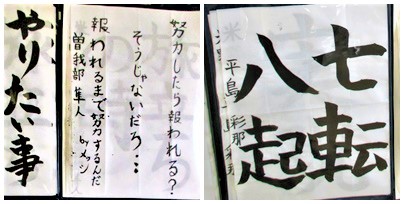 努力したら報われる?
そうじゃないだろ…
報われるまで努力するんだ
byメッシ
曽我部 隼人
やりたい事
七転
八起
平島 彩那